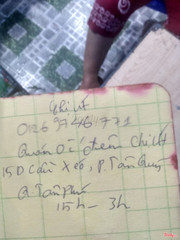 Chị Út
0126 9746 771
Quán ốc đêm Chị Út
15D Cầu Xéo, P. Tân Quý
Q Tân Phú
15h - 3h